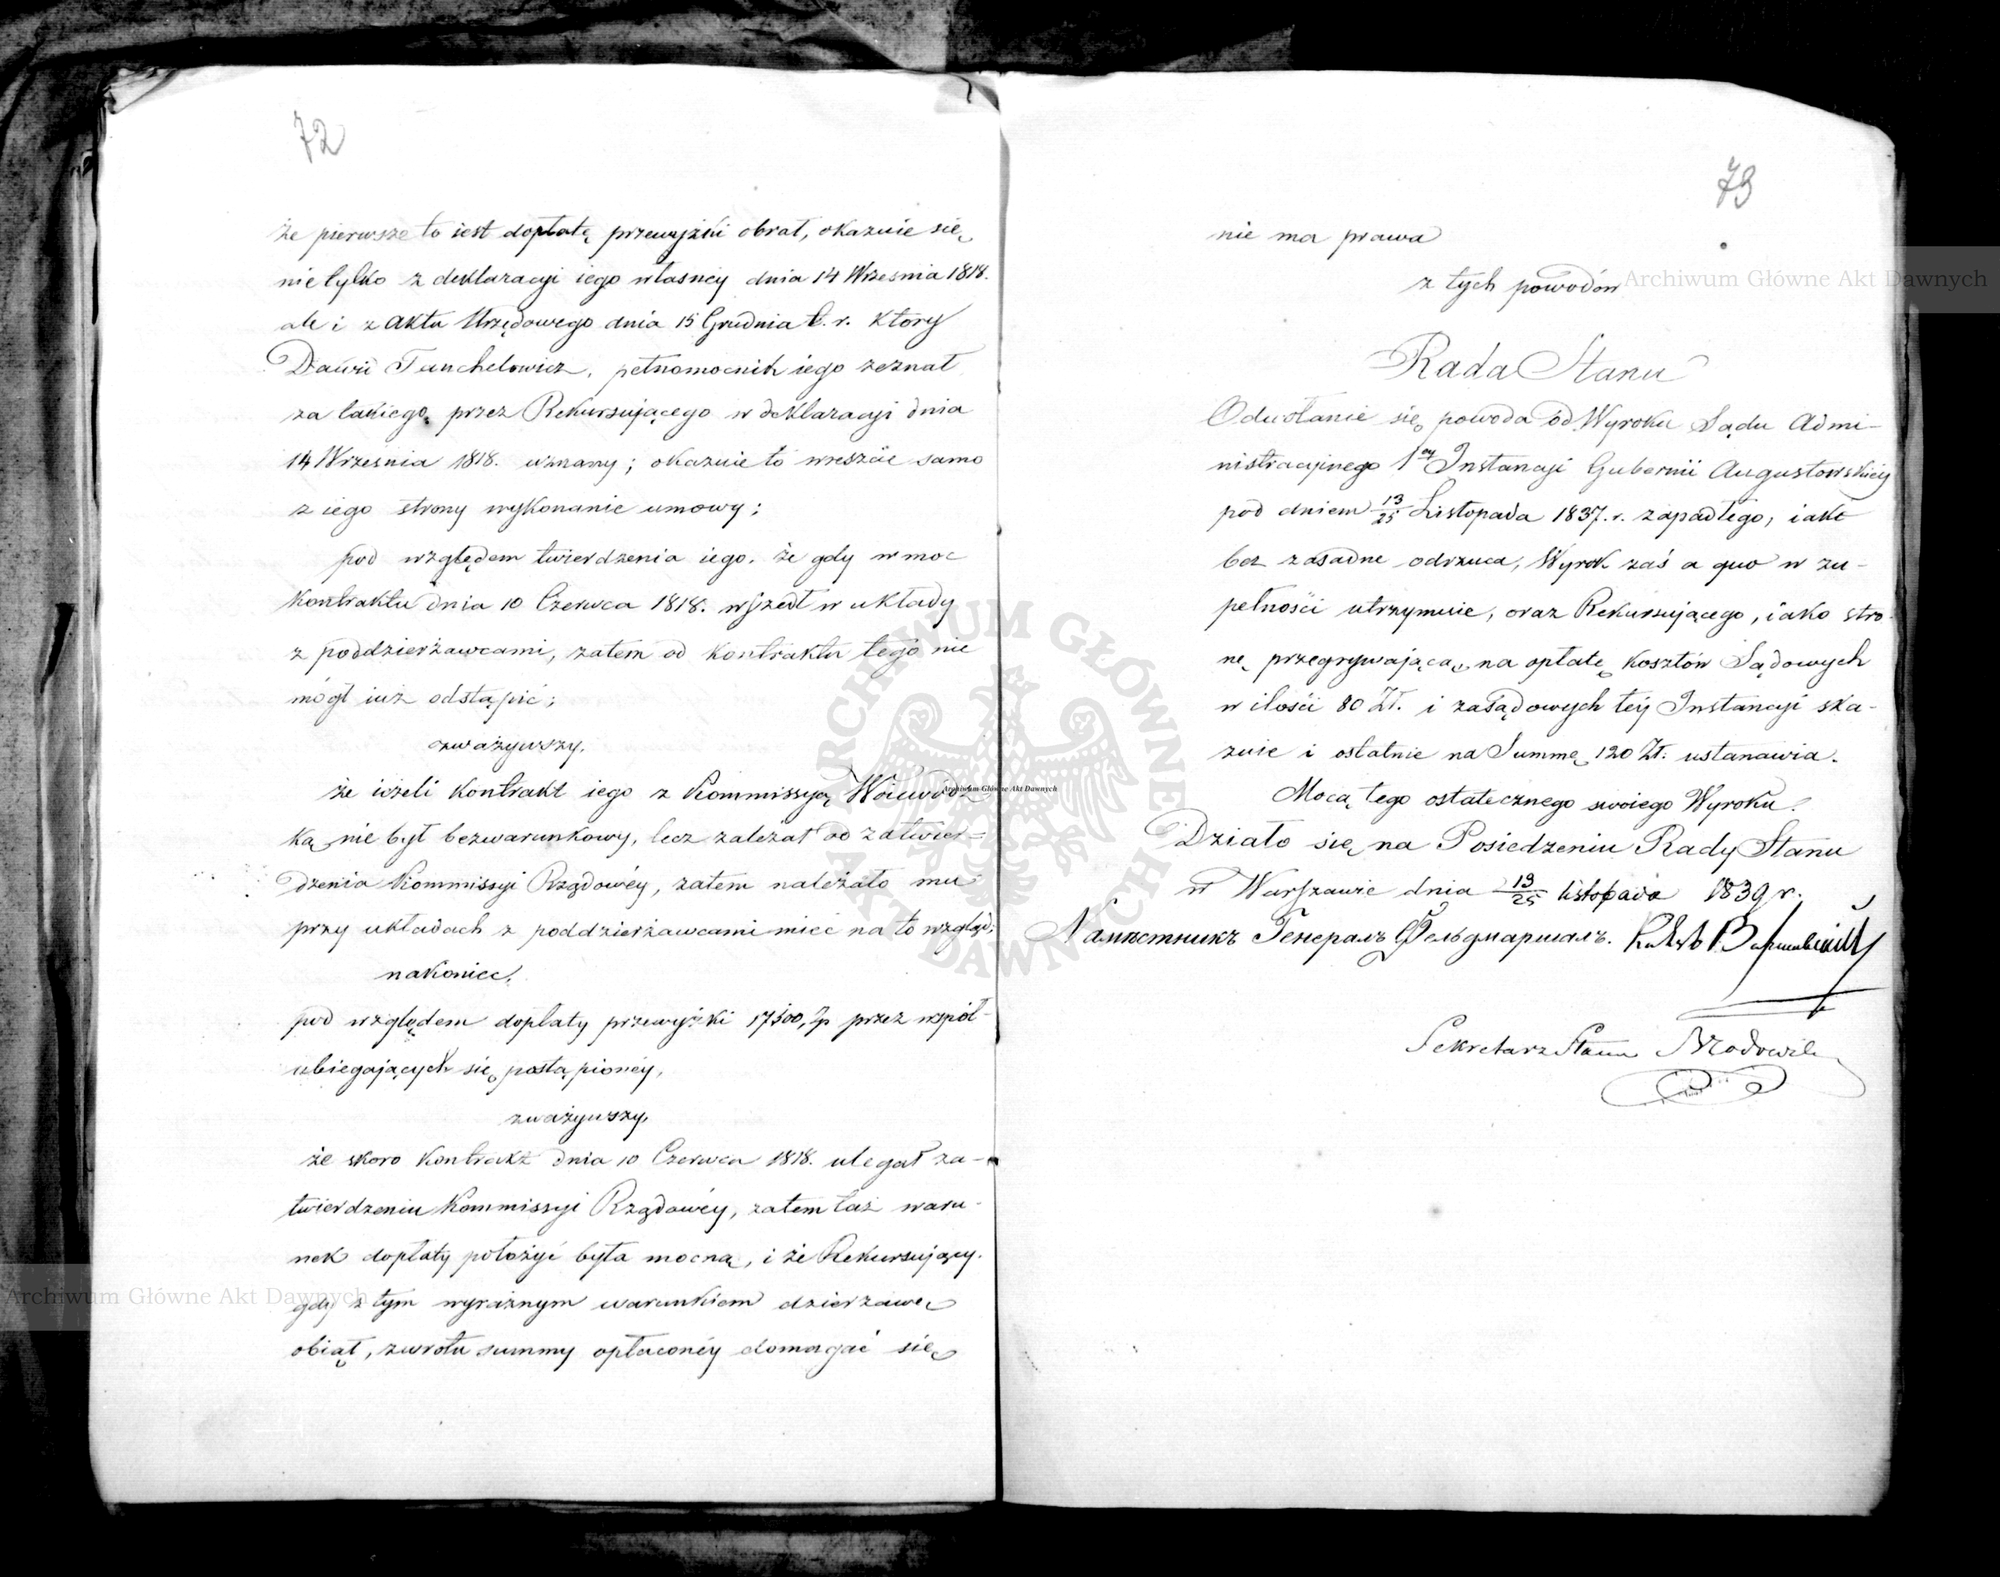 72
że pierwsze to iest dopłatę przewyżki obrał, okazuie się
nie tylko z deklaracyi iego własney dnia 14 Września 1818.
ale i z aktu Urzędowego dnia 15 Grudnia t. r. który
Dawid Tanchelowicz, pełnomocnik iego zeznał
za takiego przez Rekursującego w deklaracyi dnia
14 Września 1818. uznany; okazuie to wreszcie samo
z iego strony wykonanie umowy;
pod względem twierdzenia iego, że gdy w moc
kontraktu dnia 10 Czerwca 1818. wszedł w układy
z poddzierżawcami, zatem od kontraktu tego nie
mógł iuż odstąpić;
zważywszy,
że ieżeli kontrakt iego z Kommissyą Woiewódz-
ką nie był bezwarunkowy, lecz zależał od zatwier=
dzenia Kommissyi Rządowéy, zatem należało mu
przy układach z poddzierżawcami mieć na to wzgląd;
nakoniec,
pod względem dopłaty przewyżki 17300, Zp przez współ-
ubiegających się postąpionéy,
zważywszy,
że skoro kontrakt dnia 10 Czerwca 1818. ulegał za-
twierdzeniu Kommissyi Rządowéy, zatem taż waru-
nek dopłaty położyć była mocną, i że Rekursujący,
gdy z tym wyraźnym warunkiem dzierżawę
obiął, zwrotu summy opłaconéy domagać się
73
nie ma prawa
z tych powodów
Rada Stanu
Odwołanie się powoda od Wyroku Sądu Admi-
nistracyinego 1ey Instancyi Gubernii Augustowskiéy
pod dniem 13/25 Listopada 1837. r. zapadłego, iako
bez zasadne odrzuca, Wyrok zaś a quo w zu-
pełności utrzymuie, oraz Rekursującego, iako stro-
nę przegrywającą, na opłatę kosztów Sądowych
w ilości 80 Zł. i zasądowych téy Instancyi ska-
zuie i ostatnie na Summę 120 Zł. ustanawia.
Mocą tego ostatecznego swoiego Wyroku.
Działo się na Posiedzeniu Rady Stanu
w Warszawie dnia 13/25 listopada 1839 r.
Намѣстникъ Генералъ Фельдмаршалъ. Князь Варшавскій
Sekretarz Stanu
Archiwum Główne Akt Dawnych
Archiwum Główne Akt Dawnych
Archiwum Główne Akt Dawnych
ARCHIWUM GŁÓWNE AKT DAWNYCH